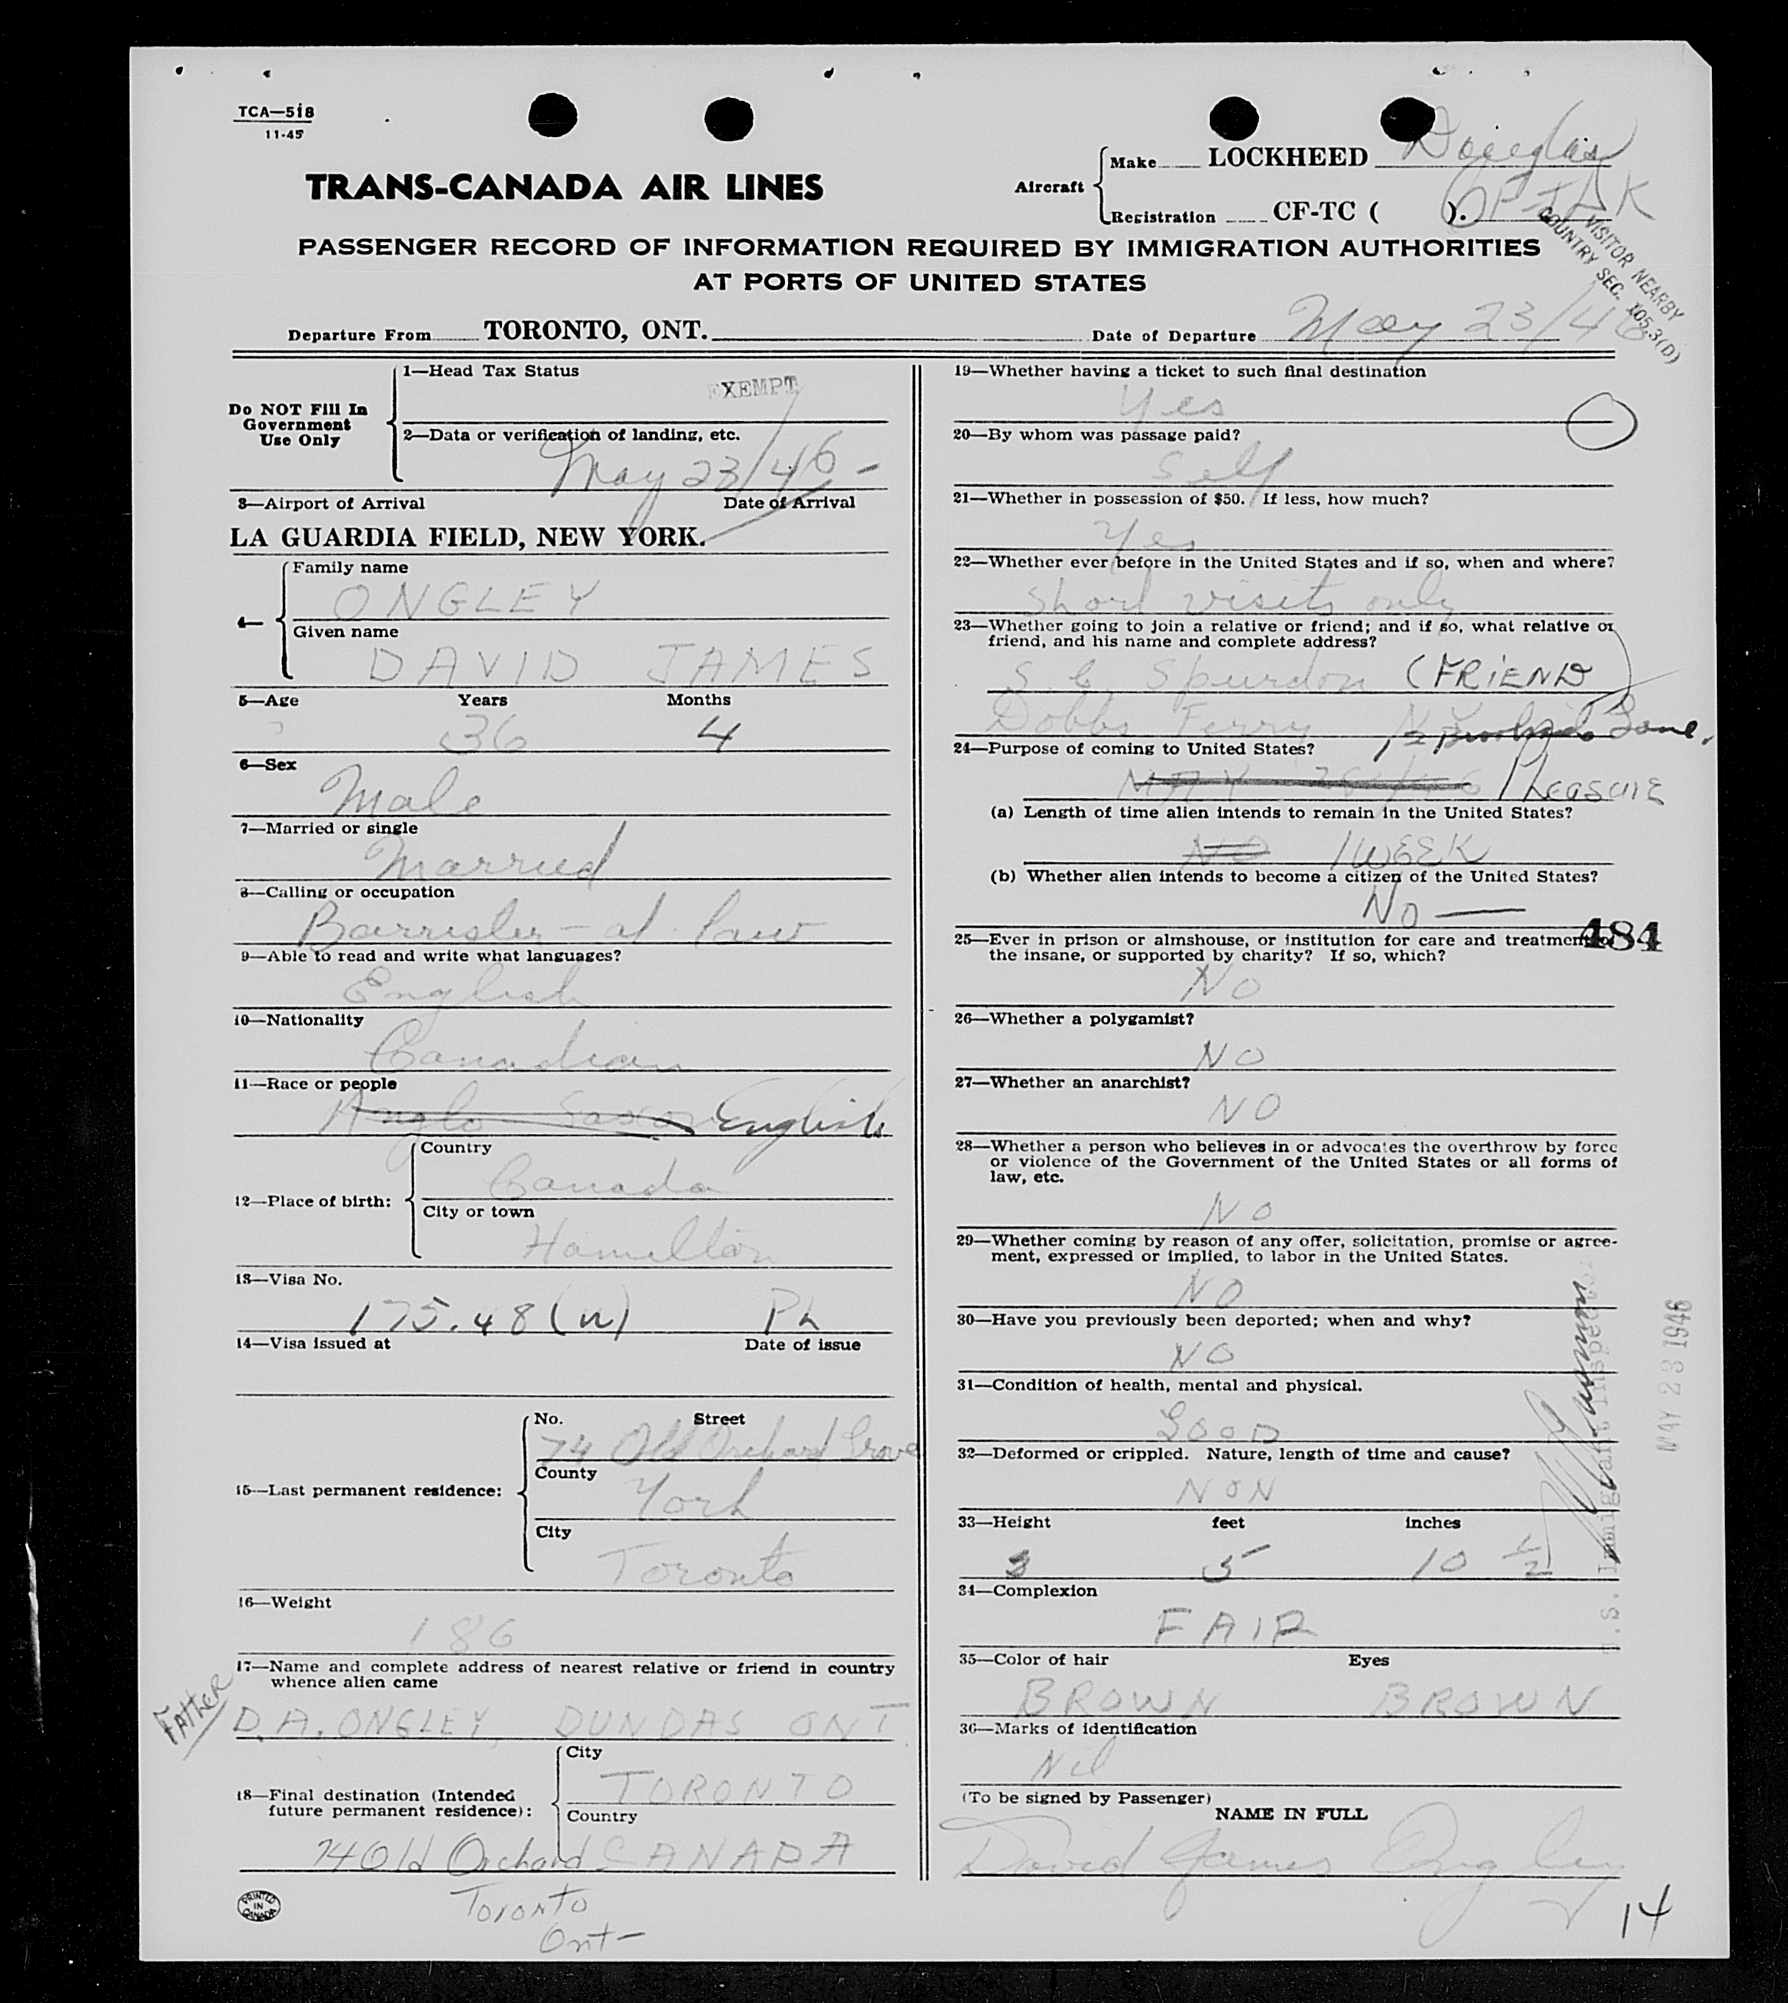 TCA—518
11-45
TRANS-CANADA AIR LINES
Aircraft
Make LOCKHEED Douglas
Registration CF-TC ( ).
PASSENGER RECORD OF INFORMATION REQUIRED BY IMMIGRATION AUTHORITIES
AT PORTS OF UNITED STATES
VISITOR NEARBY
COUNTRY SEC. 105.3(D)
Departure From TORONTO, ONT. Date of Departure May 23/46
Do NOT Fill In
Government
Use Only
1—Head Tax Status
EXEMPT
2—Data or verification of landing, etc.
May 23/46 –
3—Airport of Arrival Date of Arrival
LA GUARDIA FIELD, NEW YORK.
4—
Family name
ONGLEY
Given name
DAVID JAMES
5—Age Years Months
36 4
6—Sex
Male
7—Married or single
Married
8—Calling or occupation
Barrister - at law
9—Able to read and write what languages?
English
10—Nationality
Canadian
11—Race or people
Anglo Saxon English
12—Place of birth:
Country
Canada
City or town
Hamilton
13—Visa No.
175.48 (n) Ph
14—Visa issued at Date of issue
15—Last permanent residence:
No. Street
74 Old Orchard Grove
County
York
City
Toronto
16—Weight
186
17—Name and complete address of nearest relative or friend in country
whence alien came
FATHER
D.A. ONGLEY, DUNDAS ONT.
18—Final destination (Intended
future permanent residence):
City
TORONTO
Country
74 Old Orchard CANADA
Toronto
Ont –
PRINTED
IN
CANADA
19—Whether having a ticket to such final destination
Yes
20—By whom was passage paid?
Self
21—Whether in possession of $50. If less, how much?
Yes
22—Whether ever before in the United States and if so, when and where?
Short visits only
23—Whether going to join a relative or friend; and if so, what relative or
friend, and his name and complete address?
S. C. Spurdon (FRIEND
Dobbs Ferry N.Y.
24—Purpose of coming to United States?
Pleasure
(a) Length of time alien intends to remain in the United States?
NO 1 WEEK
(b) Whether alien intends to become a citizen of the United States?
No —
484
25—Ever in prison or almshouse, or institution for care and treatment of
the insane, or supported by charity? If so, which?
No
26—Whether a polygamist?
NO
27—Whether an anarchist?
NO
28—Whether a person who believes in or advocates the overthrow by force
or violence of the Government of the United States or all forms of
law, etc.
NO
29—Whether coming by reason of any offer, solicitation, promise or agree-
ment, expressed or implied, to labor in the United States.
NO
30—Have you previously been deported; when and why?
NO
31—Condition of health, mental and physical.
GOOD
32—Deformed or crippled. Nature, length of time and cause?
NON
33—Height feet inches
5 10 1/2
34—Complexion
FAIR
35—Color of hair Eyes
BROWN BROWN
36—Marks of identification
Nil
(To be signed by Passenger)
NAME IN FULL
David James Ongley
14
U.S. Immigrant Inspector
MAY 23 1946